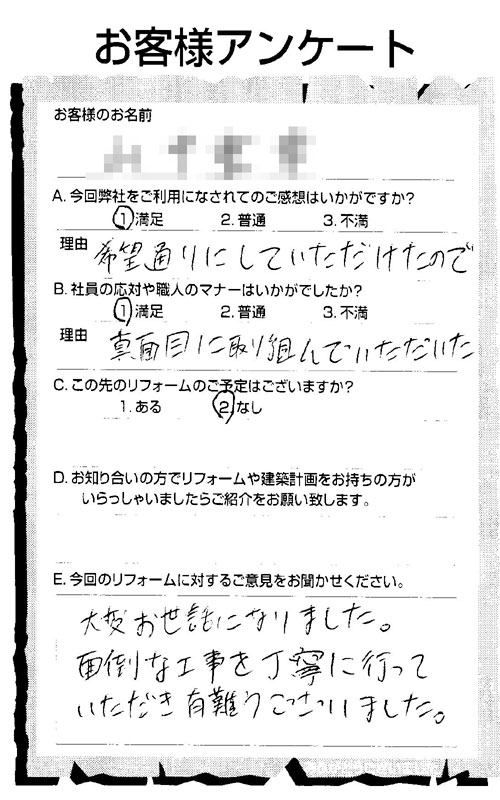 お客様アンケート
お客様のお名前
A. 今回弊社をご利用になされてのご感想はいかがですか?
1. 満足 2. 普通 3. 不満
理由 希望通りにしていただけたので
B. 社員の応対や職人のマナーはいかがでしたか?
1. 満足 2. 普通 3. 不満
理由 真面目に取り組んでいただいた
C. この先のリフォームのご予定はございますか?
1. ある 2. なし
D. お知り合いの方でリフォームや建築計画をお持ちの方が
いらっしゃいましたらご紹介をお願い致します。
E. 今回のリフォームに対するご意見をお聞かせください。
大変お世話になりました。
面倒な工事を丁寧に行って
いただき有難うございました。